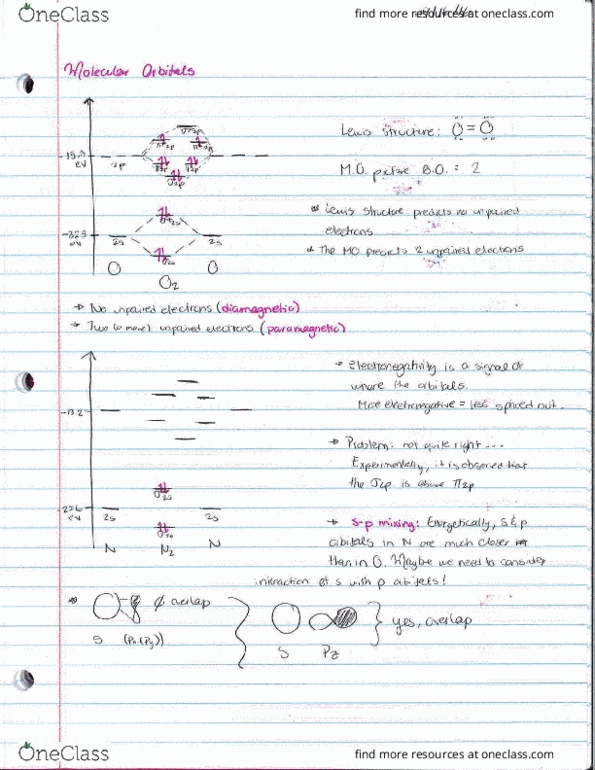 OneClass
find more resources at oneclass.com
Molecular Orbitals
σ*2p
π*2p π*2p
-15.9
eV
2p
π2p π2p
σ2p
σ*2s
-32.3
eV
2s 2s
σ2s
O O
O2
Lewis structure: O=O
M.O. picture B.O. = 2
Lewis structure predicts no unpaired
electrons
The MO predicts 2 unpaired electrons
→ No unpaired electrons (diamagnetic)
→ Two (or more) unpaired electrons (paramagnetic)
-13.2
σ*2s
eV
2s 2s
σ2s
N N2 N
→ Electronegativity is a signal of
where the orbitals.
More electronegative = less spaced out.
→ Problem: not quite right ...
Experimentally, it is observed that
the σ2p is above π2p
→ s-p mixing: Energetically, S & p
orbitals in N are much closer
than in O. Maybe we need to consider
interaction of s with p orbitals!
∅ overlap
S (Px (Py))
S Pz
yes, overlap
OneClass
find more resources at oneclass.com